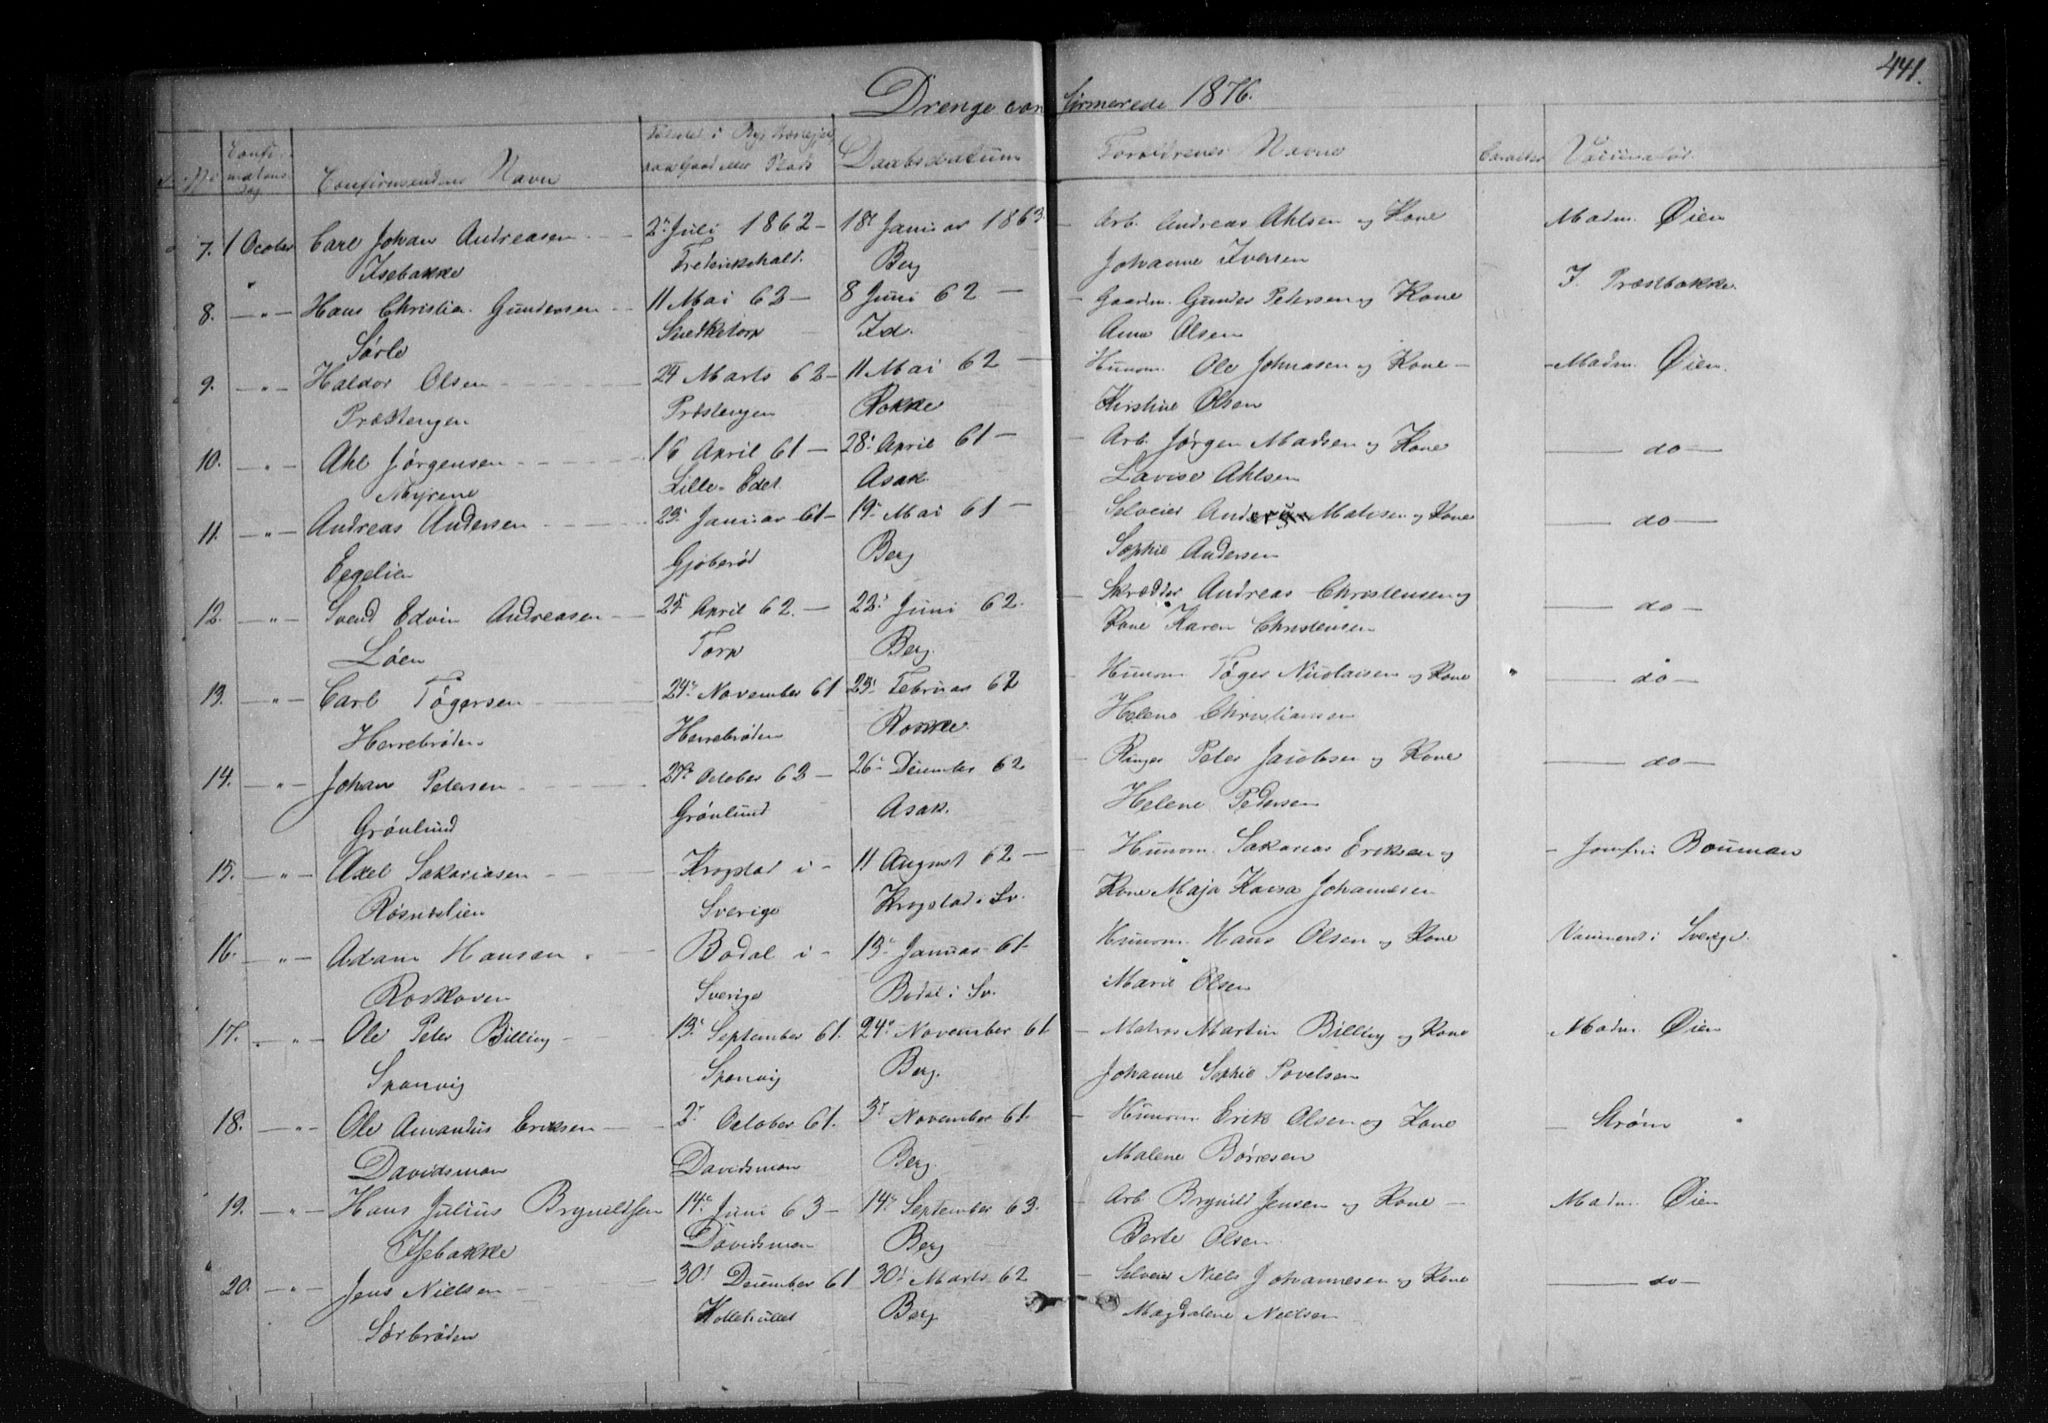 441.
Drenge confirmerede 1876.
No Confirmationsdag Confirmandens Navn Daabsdatum Forældrenes Navne Caracter Vaccinatør
7. 1 October Carl Johan Andreasen 2' Juli 1862 — 18' Januar 1863 Arb. Andreas Ahlsen og Kone Madm. Øien
Isebakke Frederikshald. Berg Johanne Iversen
8. — " — Hans Christia. Gundersen 11 Mai 62 — 8 Juni 62 — Gaardm. Gunder Petersen og Kone J. Præstbakke.
Sørli Id. Anne Olsen
9. " — Haldor Olsen 24 Marts 62 — 11 Mai 62 — Husm. Ole Johnasen og Kone — Madm. Øien.
Præstengen Prestengen Rokke Kirstine Olsen
10. — " — Ahl Jørgensen 16 April 61 — 28' April 61 — Arb. Jørgen Madsen og Kone — do —
Myrene Lille-Edet Asak Lovise Ahlsen
11. — " — Andreas Andersen 23' Januar 61 — 19' Mai 61 — Selveier Anders Matisen og Kone — do —
Eegelien Gjøberød Berg Sophie Andersen
12. — " — Svend Edvin Andreasen 25' April 62. — 22' Juni 62. Skrædder Andreas Christensen og — do —
Løen Torp Berg. Kone Karen Christensen
13. — " — Carl Tøgersen 24' November 61 23' Februar 62 Husm. Tøger Nicolaisen og Kone — do —
Herrebrøden Herrebrøden Rokke. Helene Christiansen
14. — " — Johan Petersen 27' October 62 — 26' December 62 Ringer Peter Jacobsen og Kone — do —
Grønlund Grønlund Asak. Helene Pedersen
15. — " — Axel Sakariasen Krogstad i — 11 August 62 — Husm. Sakarias Eriksen og — Jomfru Bouman
Røsneslien Sverige Krogstad i Sv. Kone Maja Kaisa Johannesen
16. — " — Adam Hansen Bodal i — 13' Januar 61 — Husm. Hans Olsen og Kone Vaccineret i Sverige.
Roskoven Sverige Bodal i Sv. Marie Olsen
17. — " — Ole Peter Billing 13' September 61. 24' November 61 Matros Martin Billing og Kone Madm. Øien
Sponvig Sponvig Berg. Johanne Sophie Povelsen
18. — " — Ole Amandus Eriksen 2' October 61. 3' November 61. Husm. Erik Olsen og Kone — Strøm
Davidsmon Davidsmon Berg. Malene Børresen
19. — " — Hans Julius Brynildsen 14' Juni 63 — 14' September 63. Arb. Brynild Jensen og Kone — Madm. Øien
Isebakke Davidsmon Berg Berte Olsen
20. — " — Jens Nielsen 30' December 61 30' Marts 62 Selveier Niels Johannesen og Kone — do —
Sørbrøden Berg Magdalene Nielsen